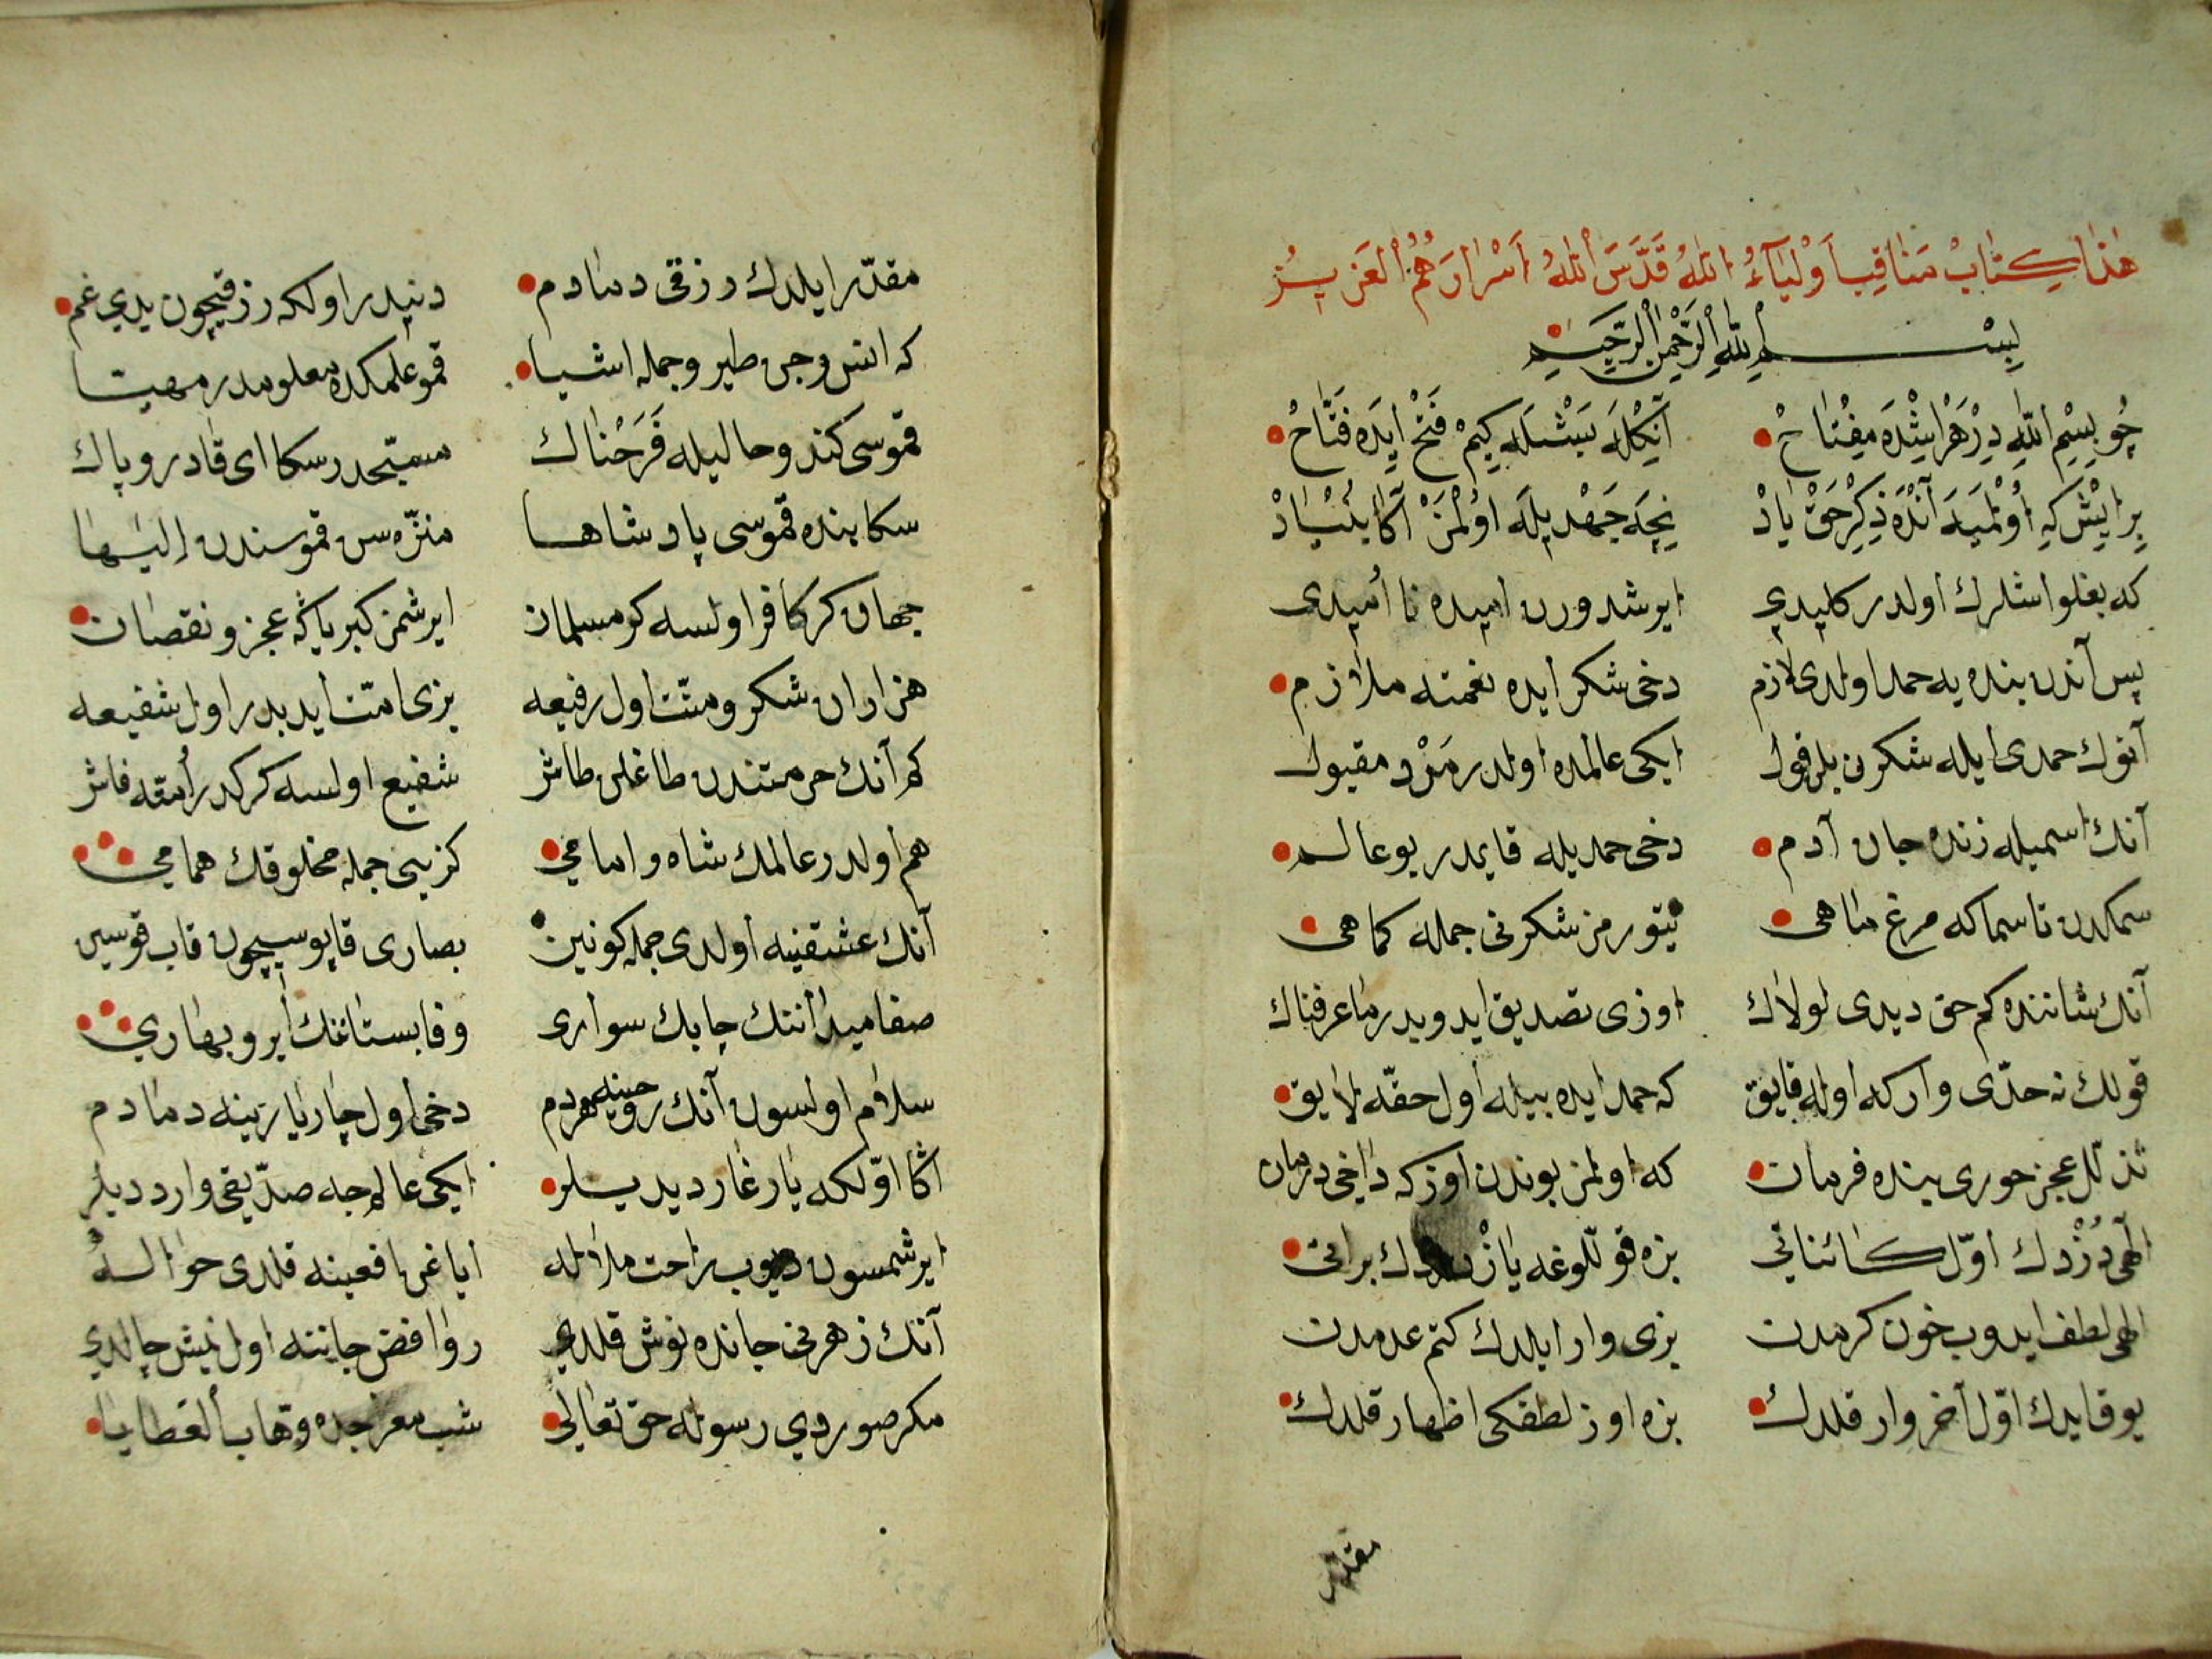 هٰذَا كِتٰابْ مَنٰاقِبِ اَوْلِيٰآءُ اللهُ قَدَّسَ اللهُ اَسْرٰارَهُمُ الْعَزِيزُ
بِسْمِ اللهِ الرَّحْمٰنِ الرَّحِيمِ
چُو بِسْمِ اللهِ دِرْ هَرْ اِيشْدَه مِفْتٰاحْ آنِكْلَه بَسْتْلَه كِيمْ فَتْحْ ايِدَه فَتّٰاحْ
بِرايِشْ كِه اُوْلْمَيَه آنْدَه ذِكْرِ حَقْ يٰادْ نِيجَه جَهْد يلَه اوُلْمَزْ آكا بُنْيٰادْ
كه بغلو اشلرك اولدر كليدي ايرشدورن اميده نا اُميدى
پس آندن بنده يه حمد اولدى لازم دخى شكر ايده نعمته ملازم
آنوك حمدى ايله شكرن بلر قول ايكى عالمده اولدر مَرْد مقبول
آنك اسميله زنده جان آدم دخى حمد يله قايمدر بو عالم
سمكدن تا سماكه مرغ ماهى يتورمز شكرنى جمله كماهى
آنك شاننده كم حق ديدى لولاك اوزى تصديق ايدوبدر ما عرفناك
قولك نه حدّى وار كه اوله فايق كه حمد ايده بيله اول حقّه لايق
تذلّل عجز خورى بنده فرمان كه اولمز بوندن اوزكه داخى درمان
الهى دُزْدك اوّل كائناتي بزه قوللوغه يازدك براتى
الهى لطف ايدوب خون كرمدن بزى وار ايلدك كتم عدمدن
يوق ايدك اوّل آخر وار قلدك بزه اوز لطفكى اظهار قلدك
مقدّر
مقدّر ايلدك رزقى دمادم دنيدر اولكه رزقيچون يدي غم
كه انس وجن طير وجمله اشيا قمو علمكده معلومدر مهيا
قموسى كندو حاليله فَرَحْناك مسبّحدر سكا اى قادر و پاك
سكا بنده قموسى پادشاها منزّه سن قموسندن الٰها
جهان كر كافر اولسه كر مسلمان ايرشمز كبرياكه عجز و نقصان
هزاران شكر و منّت اول رفيعه بزى امّت ايدبدر اول شفيعه
كم آنك حرمتندن طاغلن طاش شفيع اولسه كركدر اُمته فاش
هم اولدر عالمك شاه و امامي كزيني جمله مخلوقك همامي
آنك عشقنيه اولدى جمله كونين بصارى قاپوسيچون قاب قوسين
صفا ميداننك چابك سوارى وفا بستاننك ابر و بهاري
سلام اولسون آنك روحينه هردم دخى اول چار يارينه دمادم
اكا اوّلكه يار غار ديديلر ايكى عالمه صدّيقى وار ديديلر
ايرشمسون ديوب راحت ملاله اياغن افعينه قلدى حواله
آنك زهرنى جانده نوش قلدي روافض جاننه اول نيش چالدي
مكر صوردي رسوله حق تعالى شب معراجده وهّاب العطايا